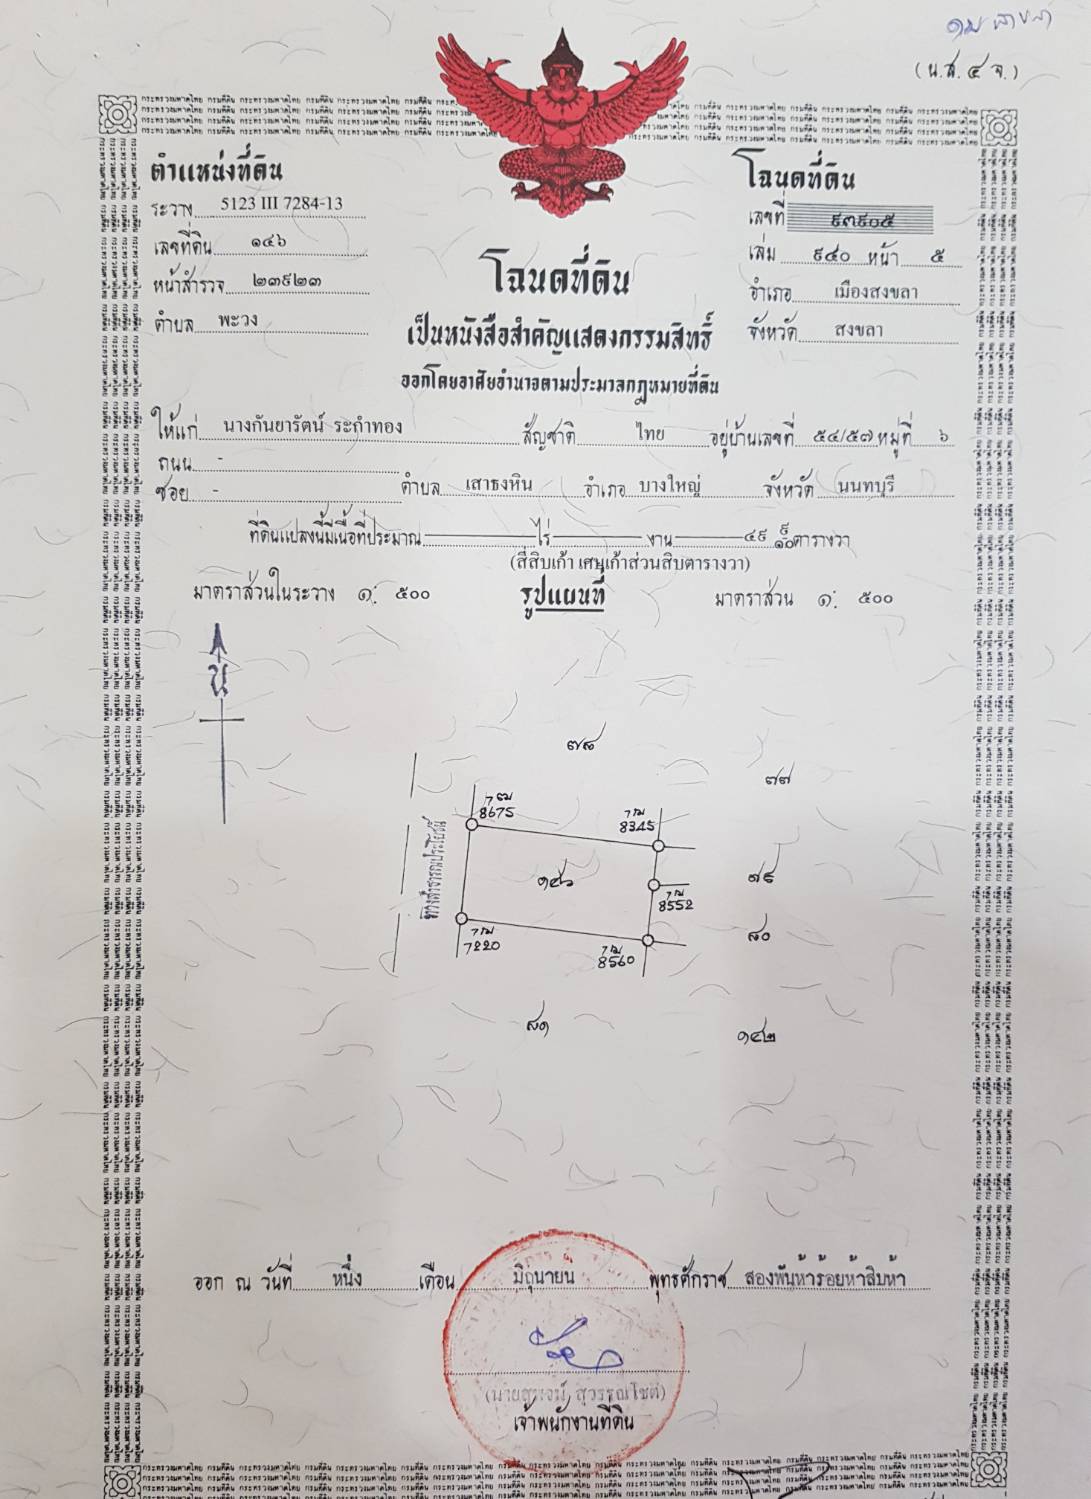 (น.ส. ๔ จ.)
ตำแหน่งที่ดิน
ระวาง 5123 III 7284-13
เลขที่ดิน ๑๔๖
หน้าสำรวจ ๒๓๙๒๓
ตำบล พะวง
โฉนดที่ดิน
เลขที่ ๙๓๙๐๕
เล่ม ๙๔๐ หน้า ๕
อำเภอ เมืองสงขลา
จังหวัด สงขลา
โฉนดที่ดิน
เป็นหนังสือสำคัญแสดงกรรมสิทธิ์
ออกโดยอาศัยอำนาจตามประมวลกฎหมายที่ดิน
ให้แก่ นางกันยารัตน์ ระกำทอง สัญชาติ ไทย อยู่บ้านเลขที่ ๕๔/๕๗ หมู่ที่ ๖
ถนน -
ซอย - ตำบล เสาธงหิน อำเภอ บางใหญ่ จังหวัด นนทบุรี
ที่ดินแปลงนี้มีเนื้อที่ประมาณ ไร่ งาน ๔๙ ๙/๑๐ ตารางวา
(สี่สิบเก้า เศษเก้าส่วนสิบตารางวา)
มาตราส่วนในระวาง ๑: ๕๐๐ รูปแผนที่ มาตราส่วน ๑: ๕๐๐
น
๗๘
๗๗
8675
8345
ทางสาธารณประโยชน์
๑๔๖
๗๙
8552
๘๐
7220
8560
๘๑
๑๔๒
ออก ณ วันที่ หนึ่ง เดือน มิถุนายน พุทธศักราช สองพันห้าร้อยห้าสิบห้า
สุวรรณโชติ)
เจ้าพนักงานที่ดิน
กระทรวงมหาดไทย กรมที่ดิน